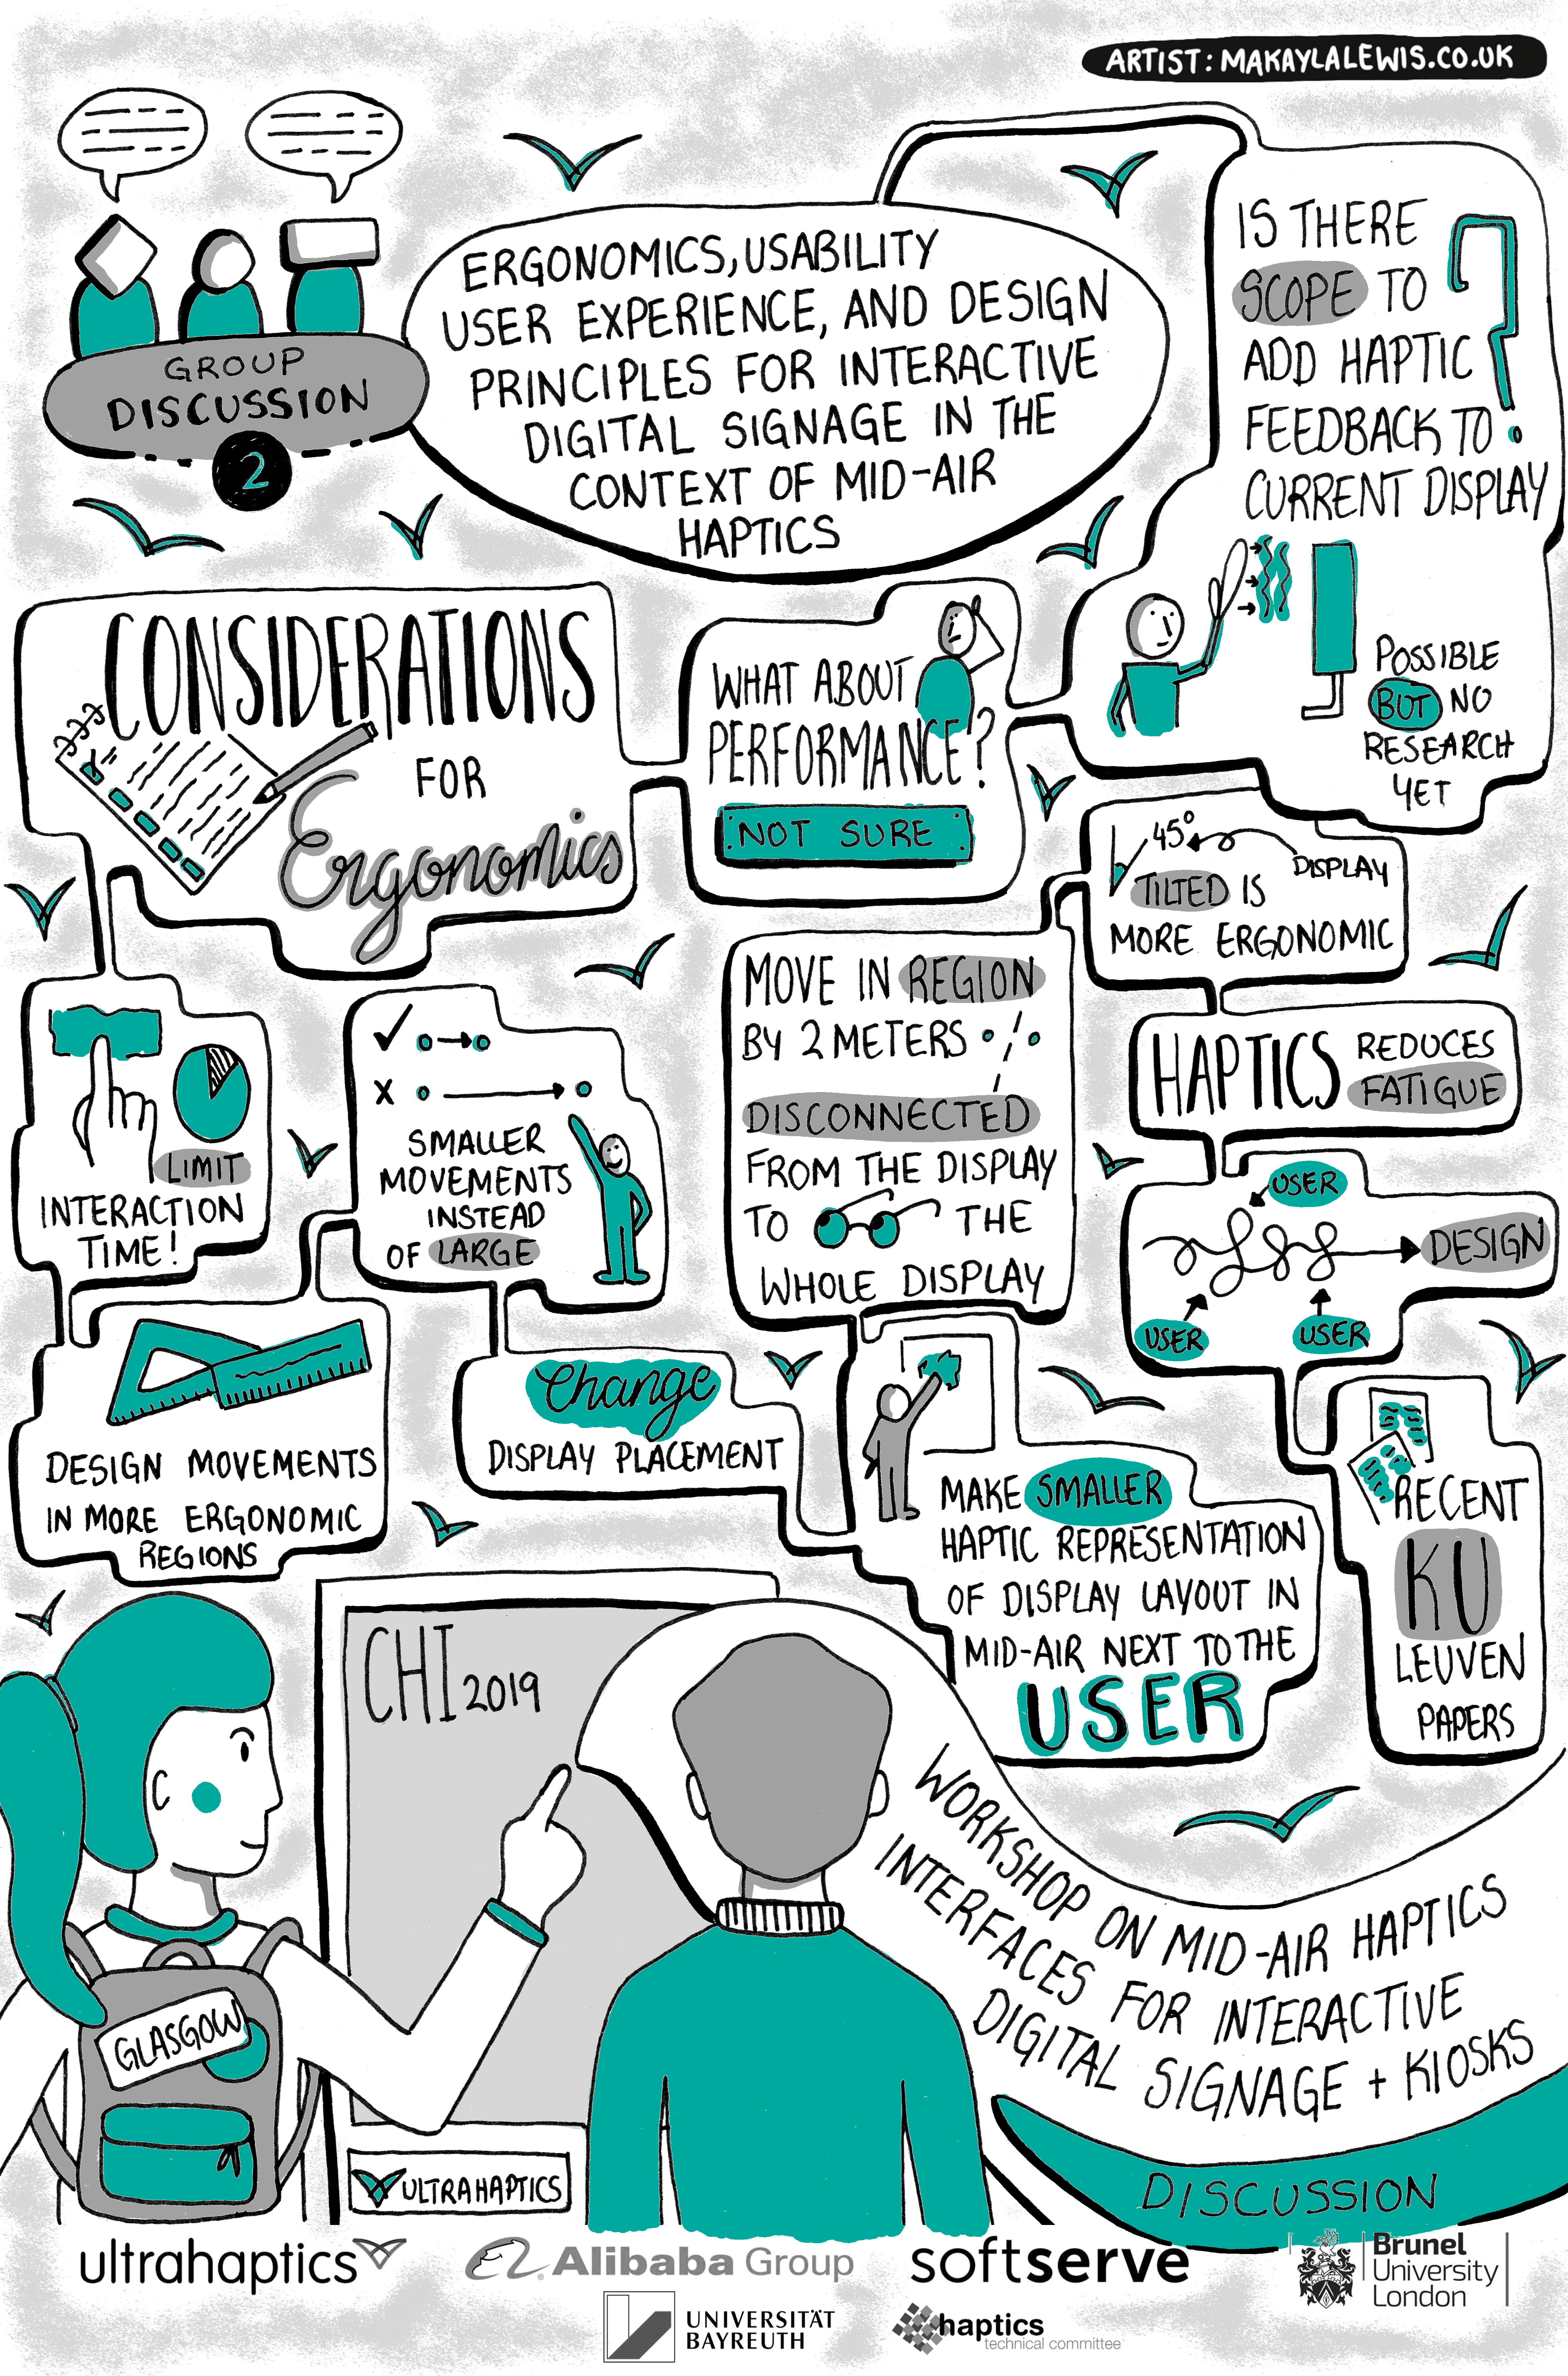 ARTIST: MAKAYLALEWIS.CO.UK
GROUP
DISCUSSION
2
ERGONOMICS, USABILITY
USER EXPERIENCE, AND DESIGN
PRINCIPLES FOR INTERACTIVE
DIGITAL SIGNAGE IN THE
CONTEXT OF MID-AIR
HAPTICS
IS THERE
SCOPE TO
ADD HAPTIC
FEEDBACK TO
CURRENT DISPLAY
?
POSSIBLE
BUT NO
RESEARCH
YET
WHAT ABOUT
PERFORMANCE?
NOT SURE
CONSIDERATIONS
FOR
Ergonomics
LIMIT
INTERACTION
TIME!
DESIGN MOVEMENTS
IN MORE ERGONOMIC
REGIONS
SMALLER
MOVEMENTS
INSTEAD
OF LARGE
Change
DISPLAY PLACEMENT
MAKE SMALLER
HAPTIC REPRESENTATION
OF DISPLAY LAYOUT IN
MID-AIR NEXT TO THE
USER
MOVE IN REGION
BY 2 METERS
DISCONNECTED
FROM THE DISPLAY
TO THE
WHOLE DISPLAY
45°
DISPLAY
TILTED IS
MORE ERGONOMIC
HAPTICS REDUCES
FATIGUE
USER
DESIGN
USER
USER
RECENT
KU
LEUVEN
PAPERS
CHI 2019
GLASGOW
ULTRAHAPTICS
WORKSHOP ON MID-AIR HAPTICS
INTERFACES FOR INTERACTIVE
DIGITAL SIGNAGE + KIOSKS
DISCUSSION
ultrahaptics
Alibaba Group
softserve
Brunel
University
London
UNIVERSITÄT
BAYREUTH
haptics
technical committee